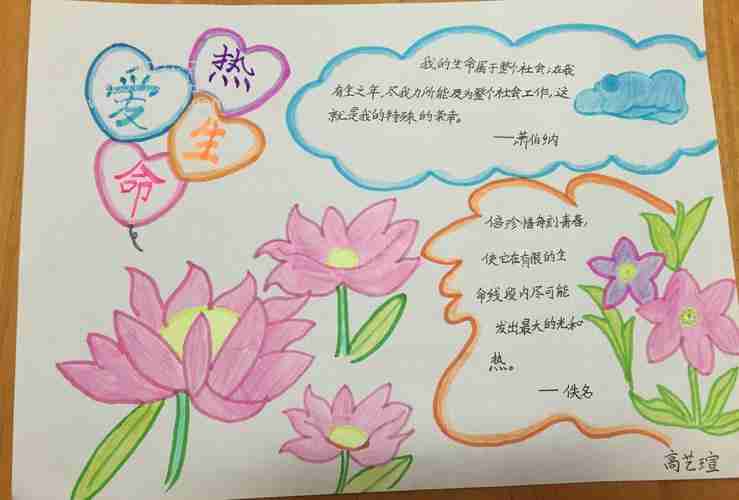 热
爱
生
命
我的生命属于整个社会;在我
有生之年,尽我力所能及为整个社会工作,这
就是我的特殊的荣幸。
——萧伯纳
倍珍惜每刻青春,
使它在有限的生
命线段内尽可能
发出最大的光和
热。
——佚名
高艺瑄